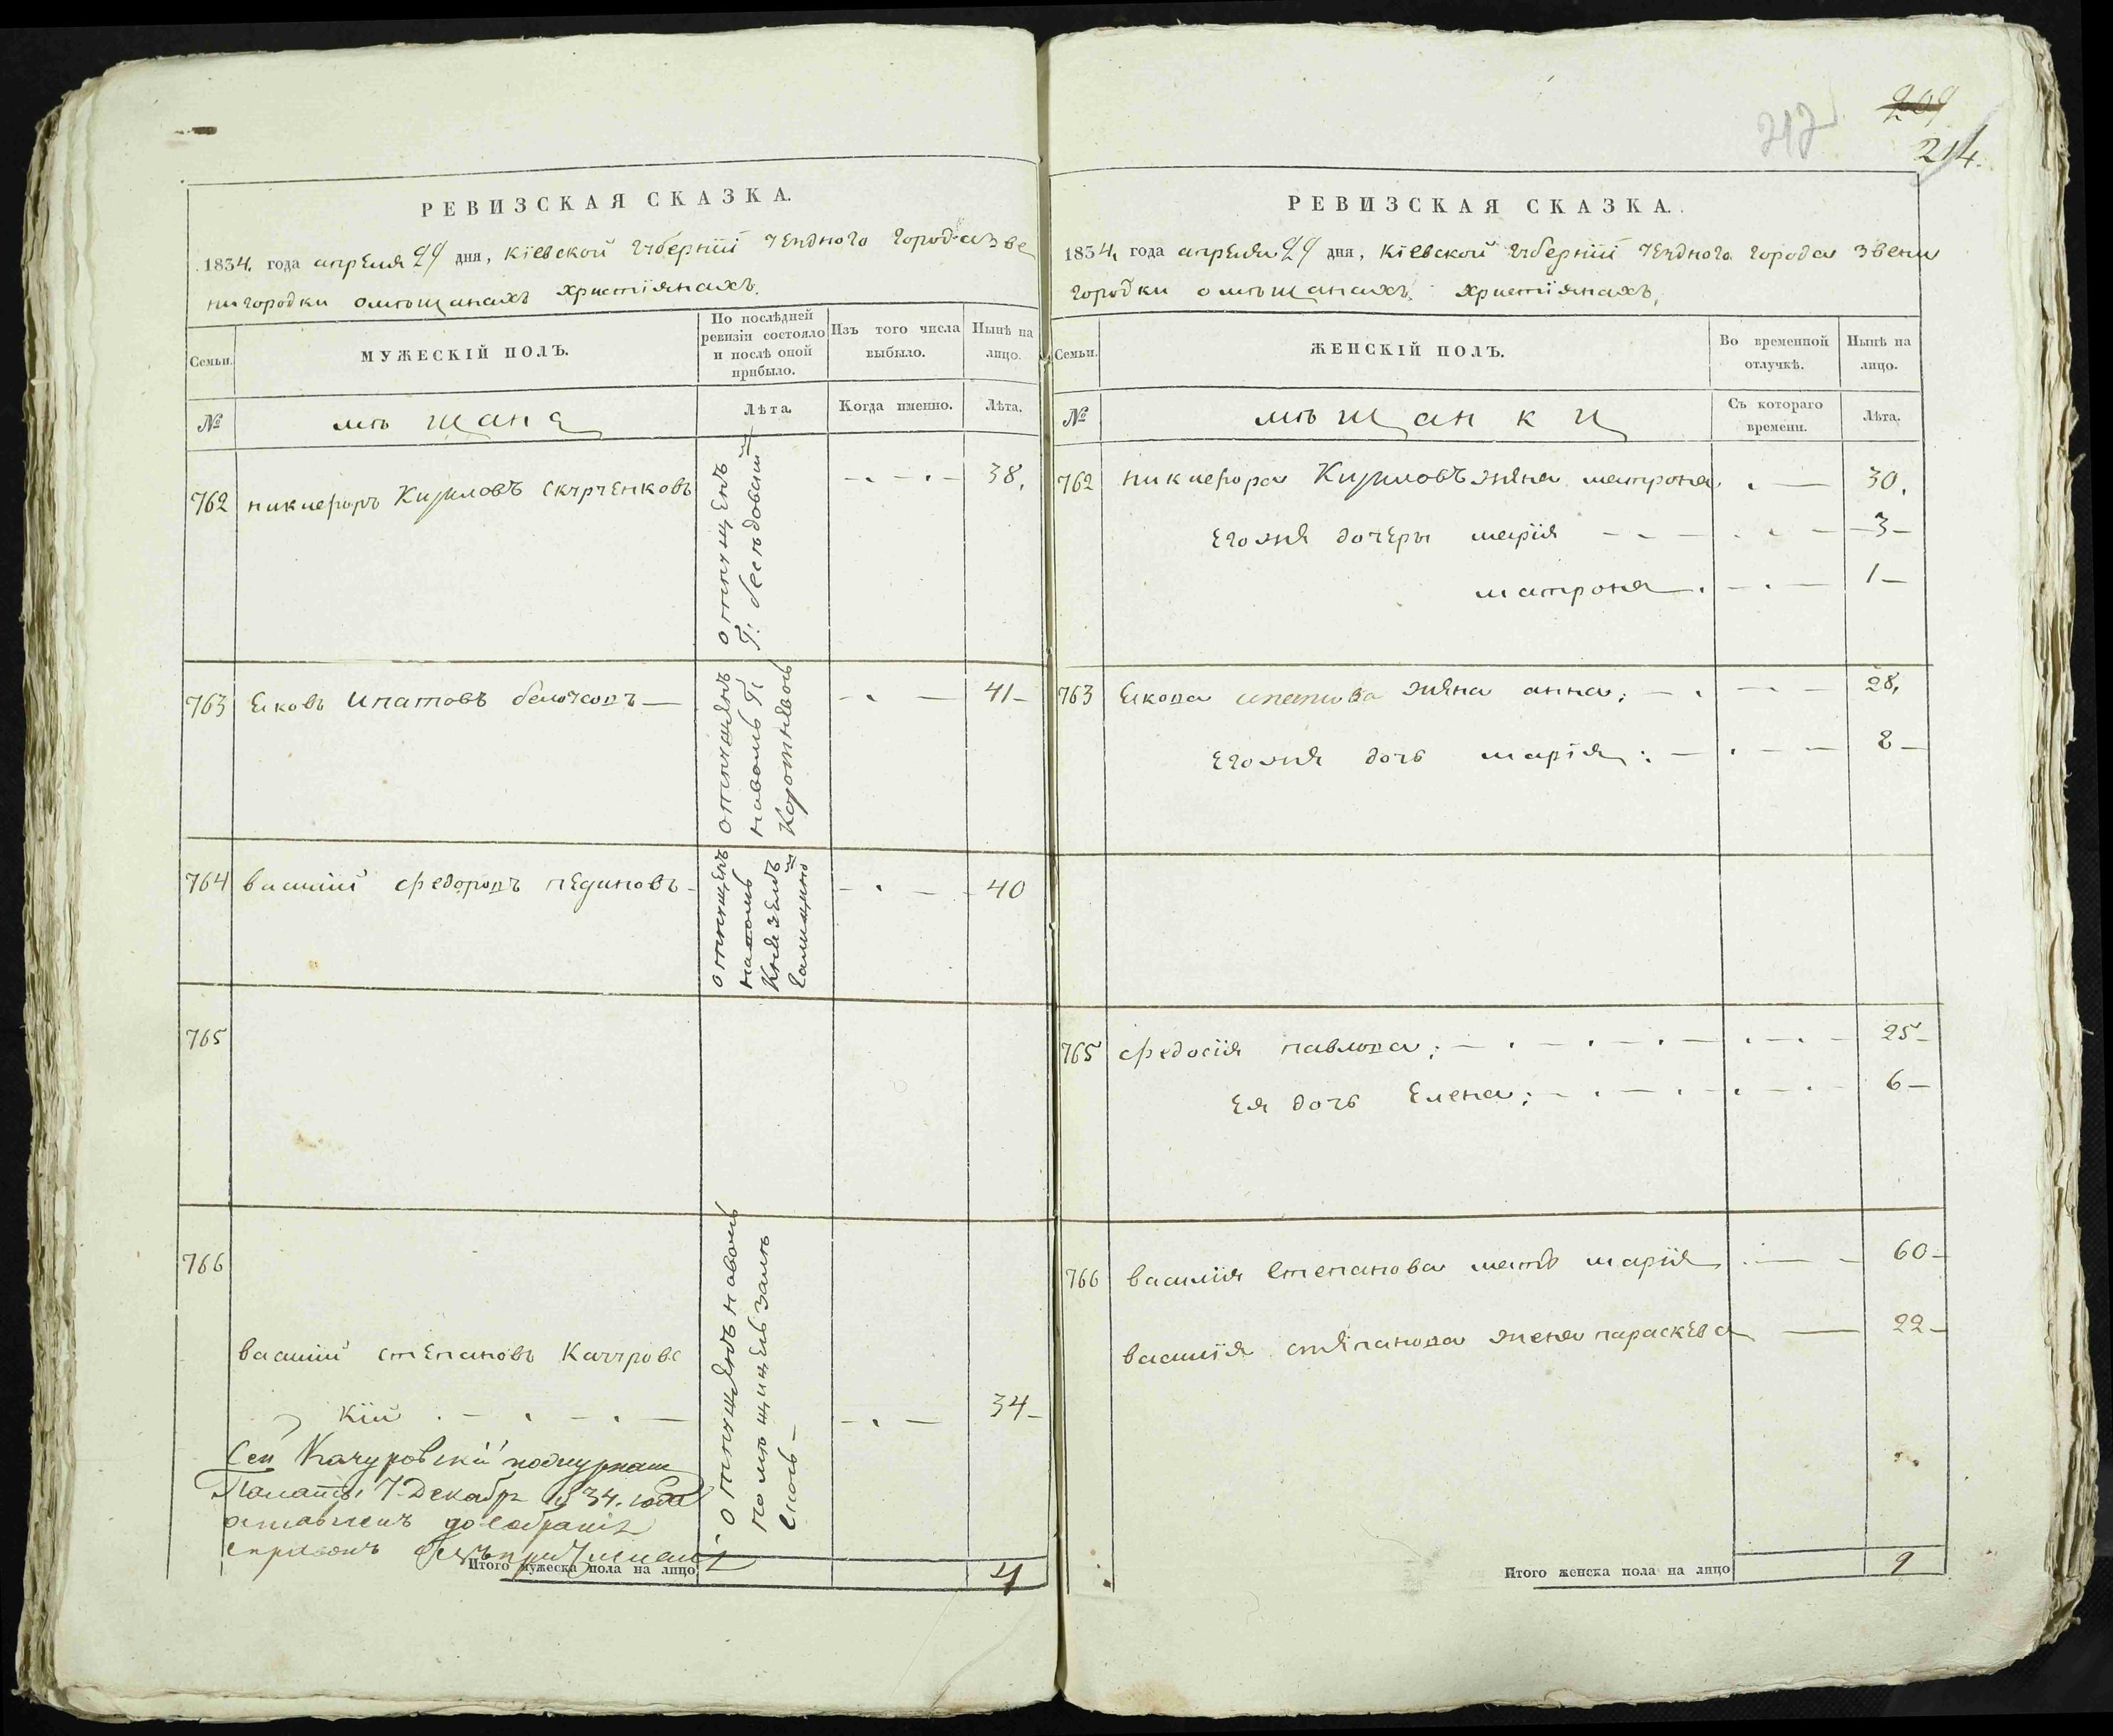 209
212
214.
РЕВИЗСКАЯ СКАЗКА.
1834. года апреля 29 дня, Кіевской губерніи уездного города Зве
нигородки омѣщанахъ христіянахъ.
Семьи.
МУЖЕСКІЙ ПОЛЪ.
По послѣдней
ревизіи состояло
и послѣ оной
прибыло.
Изъ того числа
выбыло.
Нынѣ на
лицо.
№
мѣщане
Лѣта.
Когда именно.
Лѣта.
762 никиефоръ Кириловъ Скурченковъ
отпущенъ
Г: беседовски
38.
763 Ековъ Ипатовъ белоусовъ
отпущенъ
наволь Г:
41
764 василий федоровъ
отпущенъ
наволь
Княземъ
40
765
766
василий степановъ Качуровс
кій
отпущенъ наволь
34
Сей Качуровскій
Палаты 7 Декабр 1834. года
оставленъ до собранія
справокъ
Итого мужеска пола на лицо
4
РЕВИЗСКАЯ СКАЗКА.
1834, года апреля 29 дня, Кіевской губерніи уездного города Звени
городки омѣщанахъ христіянахъ,
Семьи.
ЖЕНСКІЙ ПОЛЪ.
Во временной
отлучкѣ.
Нынѣ на
лицо.
№
мѣщанки
Съ котораго
времени.
Лѣта.
762 никиефора Кириловъ жена матрона 30.
егожя дочеры марія 3
матрона 1
763 Екова ипатова жяна анна; 28,
егожя дочь марія: 8
765 федосія павлова; 25
ея дочь Елена; 6
766 василія Степанова мать марія 60
василія стяпанова женя параскева 22
Итого женска пола на лицо
9